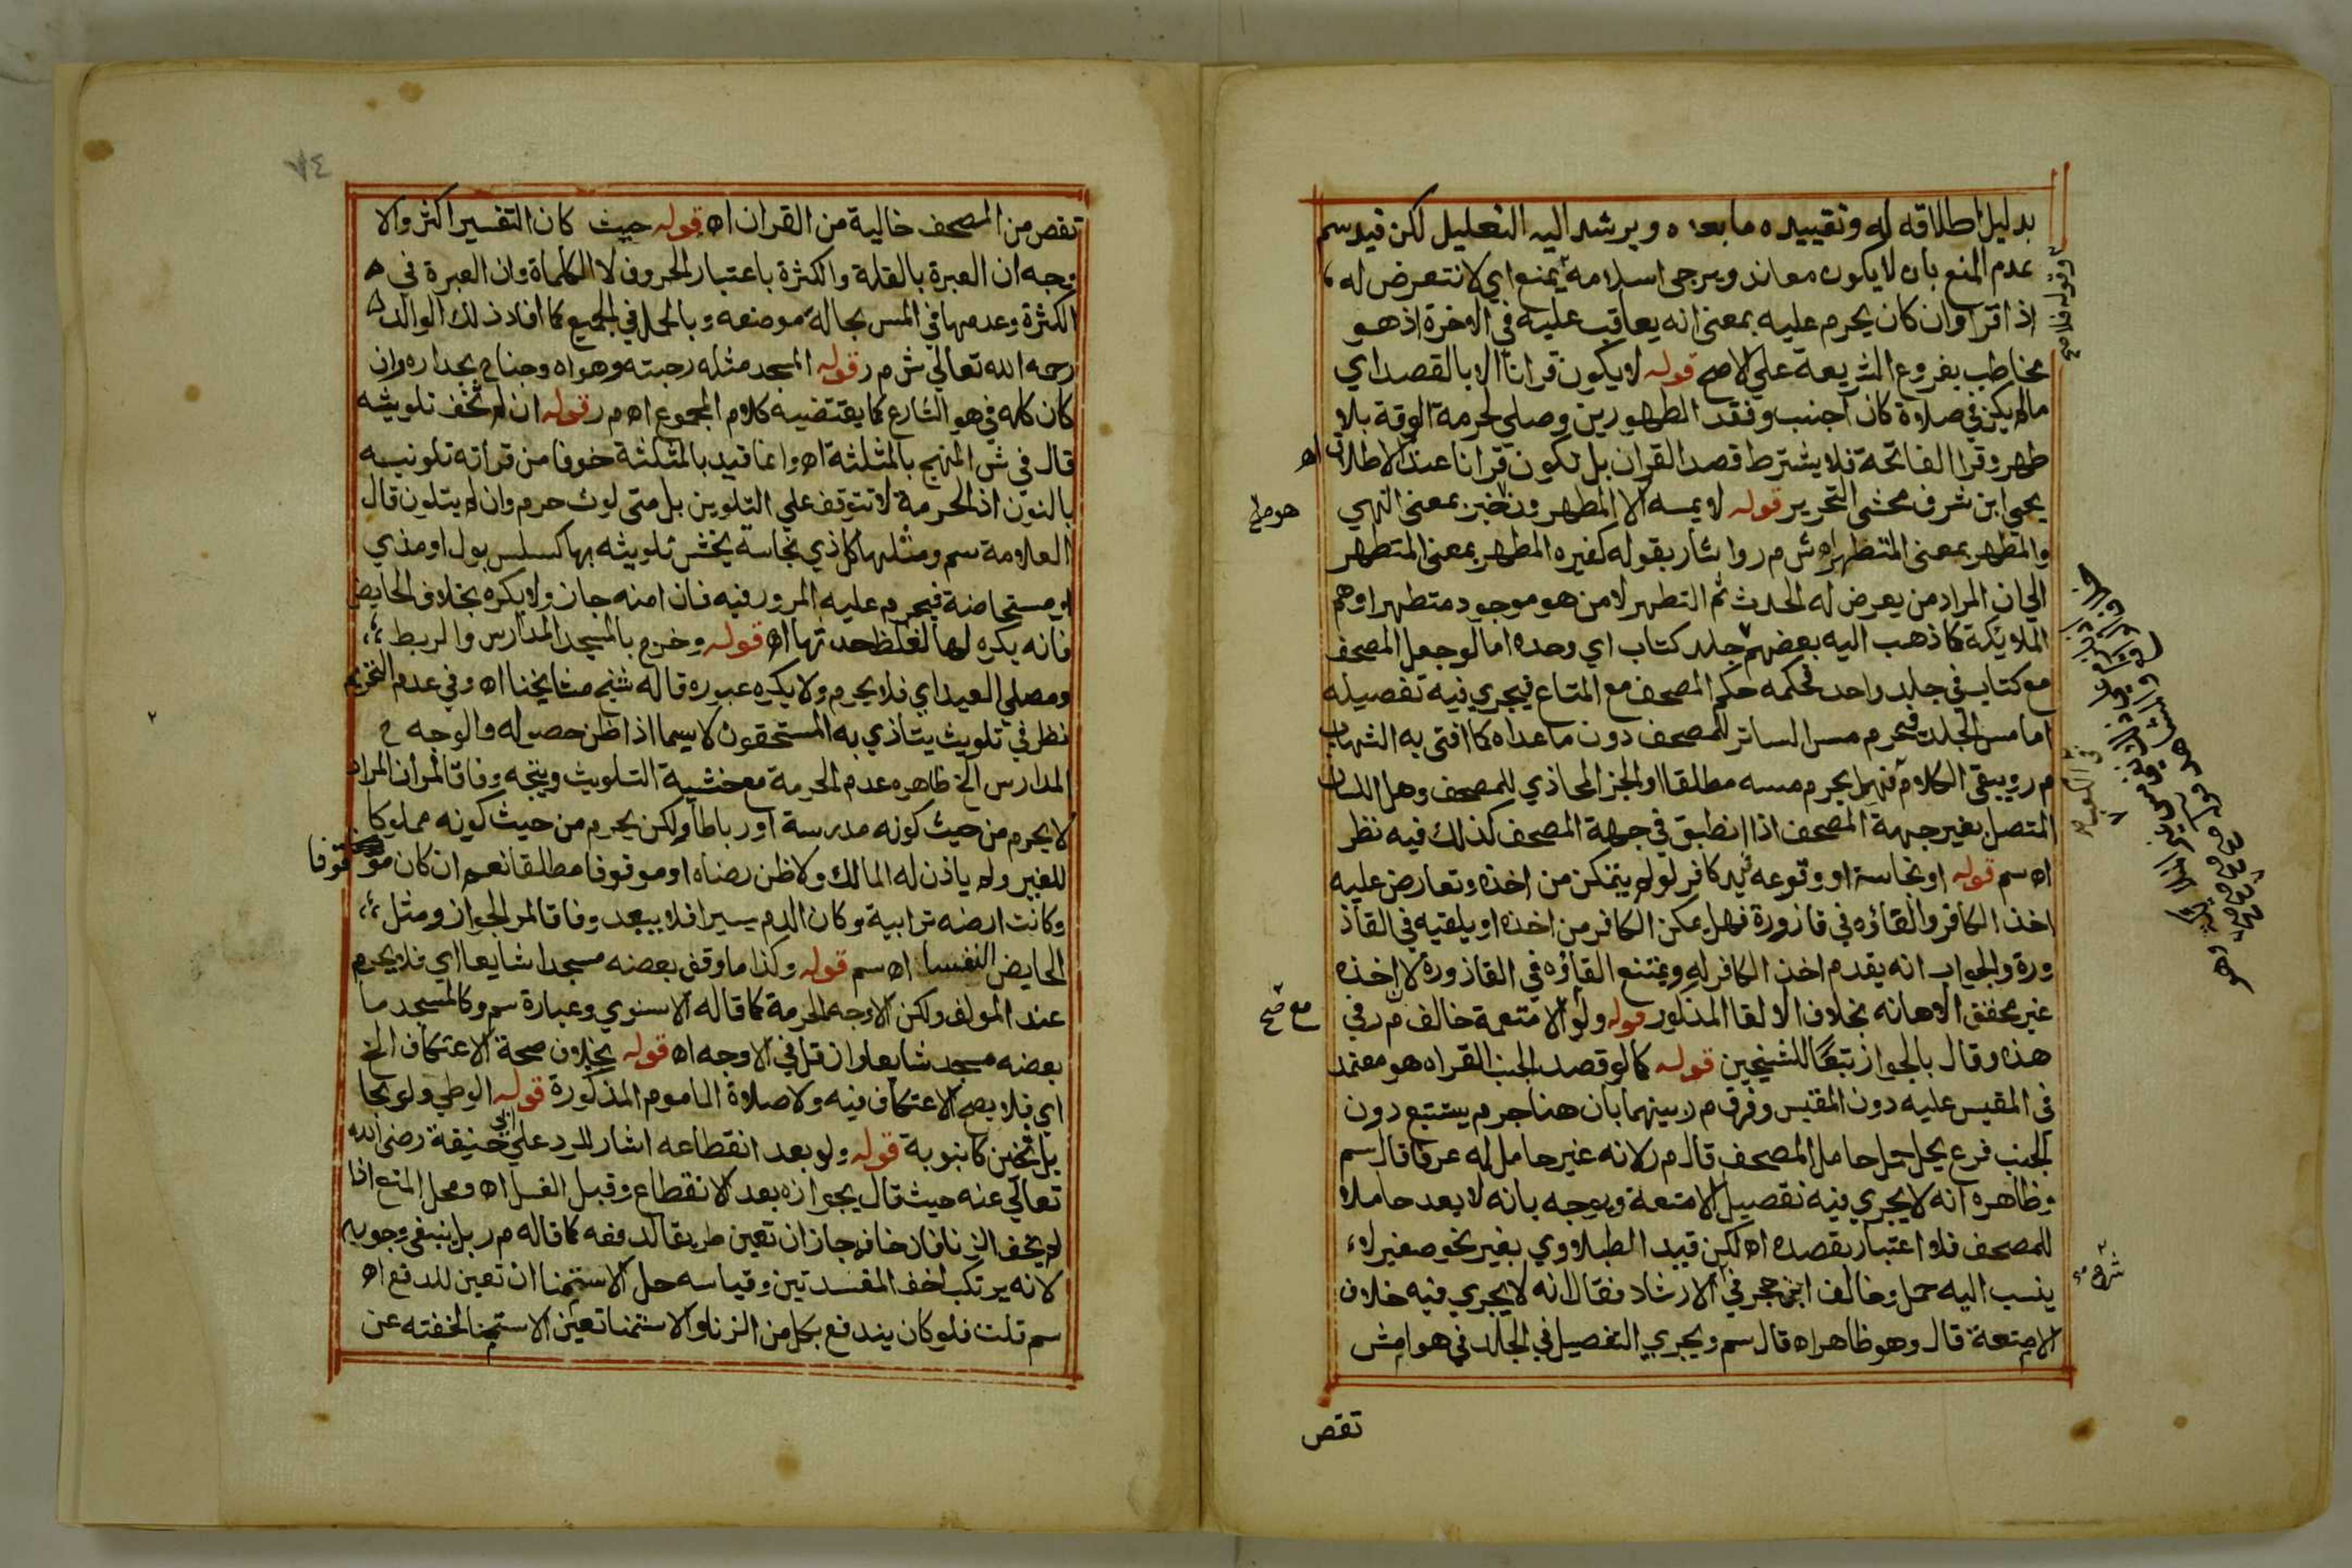 بدليل اطلاقه له وتقييده ما بعده ويرشد اليه التعليل لكن قيد سم
عدم المنع بان لا يكون معاند ويرجى اسلامه يمنع اي لا نتعرض له
اذ اقرا وان كان يحرم عليه بمعنى انه يعاقب عليه في الاخرة اذ هو
مخاطب بفروع الشريعة علي الاصح قوله لا يكون قرانا الا بالقصد اي
مالم يكن في صلاة كان اجنب وفقد الطهورين وصلي لحرمة الوقة بلا
طهر وقرا الفاتحة فلا يشترط قصد القران بل تكون قرانا عند الاطلاق اه
يحيى ابن شرف محشى التحرير قوله لا يمسه الا المطهرون خبر بمعنى النهي
والمطهر بمعنى المتطهر اه ش م ر واشار بقوله كغيره المطهر بمعنى المتطهر
الي ان المراد من يعرض له الحدث ثم التطهر لا من هو موجود متطهرا وهم
الملايكة كما ذهب اليه بعضهم جلد كتاب اي وحده اما لو جعل المصحف
مع كتاب في جلد واحد فحكمه حكم المصحف مع المتاع فيجري فيه تفصيله
اما مس الجلد فيحرم مس الساتر للمصحف دون ما عداه كما افتى به الشهاب
م ر ويبقى الكلام فهل يحرم مسه مطلقا او الجز المحاذي للمصحف وهل اللسان
المتصل بغير جهة المصحف اذا انطبق في جهة المصحف كذلك فيه نظر
اه سم قوله او نجاسة او وقوعه بيد كافر لو لم يتمكن من اخذه وتعارض عليه
اخذ الكافر والقاؤه في قاذورة فهل يمكن الكافر من اخذه او يلقيه في القاذ
ورة والجواب انه يقدم اخذ الكافر له ويمتنع القاؤه في القاذورة لا اخذه
غير محقق الاهانه بخلاف الالقا المذكور قوله ولو الامتعمة خالف م ر في
هذه وقال بالجواز تبعا للشيخين قوله كما لو قصد الجنب القراه هو معتمد
في المقيس عليه دون المقيس وفرق م ر بينهما بان هنا جرم يستتبع دون
الجنب فرع يحل حمل حامل المصحف قال م ر لانه غير حامل له عرفا قال سم
وظاهره انه لا يجري فيه تفصيل الامتعة ويوجه بانه لا يعد حاملا
للمصحف فلا اعتبار بقصده اه لكن قيد الطبلاوي بغير نحو صغير لا
ينسب اليه حمل وخالف ابن حجر في الارشاد فقال انه لا يجري فيه خلاف
الامتعة قال وهو ظاهر اه قال سم ويجري التفصيل في الجلد في هوامش
تقص
٧٤
تقص من المصحف خالية من القران اه قوله حيث كان التفسير اكثر والا
وجه ان العبرة بالقلة والكثرة باعتبار الحروف لا الكلمات وان العبرة في
الكثرة وعدمها في المس بحالة موضعه وبالحمل في الجميع كما افاد ذلك الوالد
رحمه الله تعالي ش م ر قوله المسجد مثله رحبته وهواه وجناح بجداره وان
كان كله في هو الشارع كما يقتضيه كلام المجموع اه م ر قوله ان لم تخف تلويثه
قال في ش المنهج بالمثلثة اه وانما قيد بالمثلثة خوفا من قراته تلونيه
بالنون اذ الحرمة لا تتوقف علي التلوين بل متى لوث حرم وان لم يتلون قال
العلامة سم ومثلها كل ذي نجاسة يخشى تلويثه بها كسلس بول او مذي
او مستحاضة فيحرم عليه المرور فيه فان امنه جاز ولا يكره بخلاف الحايض
فانه يكره لها لغلظ حدثها اه قوله وخرج بالمسجد المدارس والربط
ومصلي العيد اي فلا يحرم ولا يكره عبوره قاله شيخ مشايخنا اه وفي عدم التحريم
نظر في تلويث يتاذي به المستحقون لا سيما اذا ظن حصوله والوجه ح
المدارس الخ ظاهره عدم الحرمة مع خشية التلويث ويتجه وفاقا لمر ان المراد
لا يحرم من حيث كونه مدرسة او رباطا ولكن يحرم من حيث كونه مملوكا
للغير ولم ياذن له المالك ولا ظن رضاه او موقوفا مطلقا نعم ان كان موقوفا
وكانت ارضه ترابية وكان الدم يسيرا فلا يبعد وفاقا لمر الجواز ومثل
الحايض النفسا اه سم قوله وكذا ما وقف بعضه مسجدا شايعا اي فلا يحرم
عند المولف ولكن الاوجه الحرمة كما قاله الاسنوي وعبارة سم وكالمسجد ما
بعضه مسجد شايعا وان قل في الاوجه اه قوله بخلاف صحة الاعتكاف الخ
اي فلا يصح الاعتكاف فيه ولا صلاة الماموم المذكورة قوله الوطي ولو بحا
يل ثخين كانبوبة قوله ولو بعد انقطاعه اشار للرد علي ابي حنيفة رضى الله
تعالي عنه حيث قال بجوازه بعد الانقطاع وقبل الغسل اه ومحل المنع اذا
لم يخف الزنا فان خافه جاز ان تعين طريقا لدفعه كما قاله م ر بل ينبغي وجوبه
لانه يرتكب اخف المفسدتين وقياسه حل الاستمنا ان تعين للدفع اه
سم قلت فلو كان يندفع بكل من الزنا والاستمنا تعين الاستمنا لخفته عن